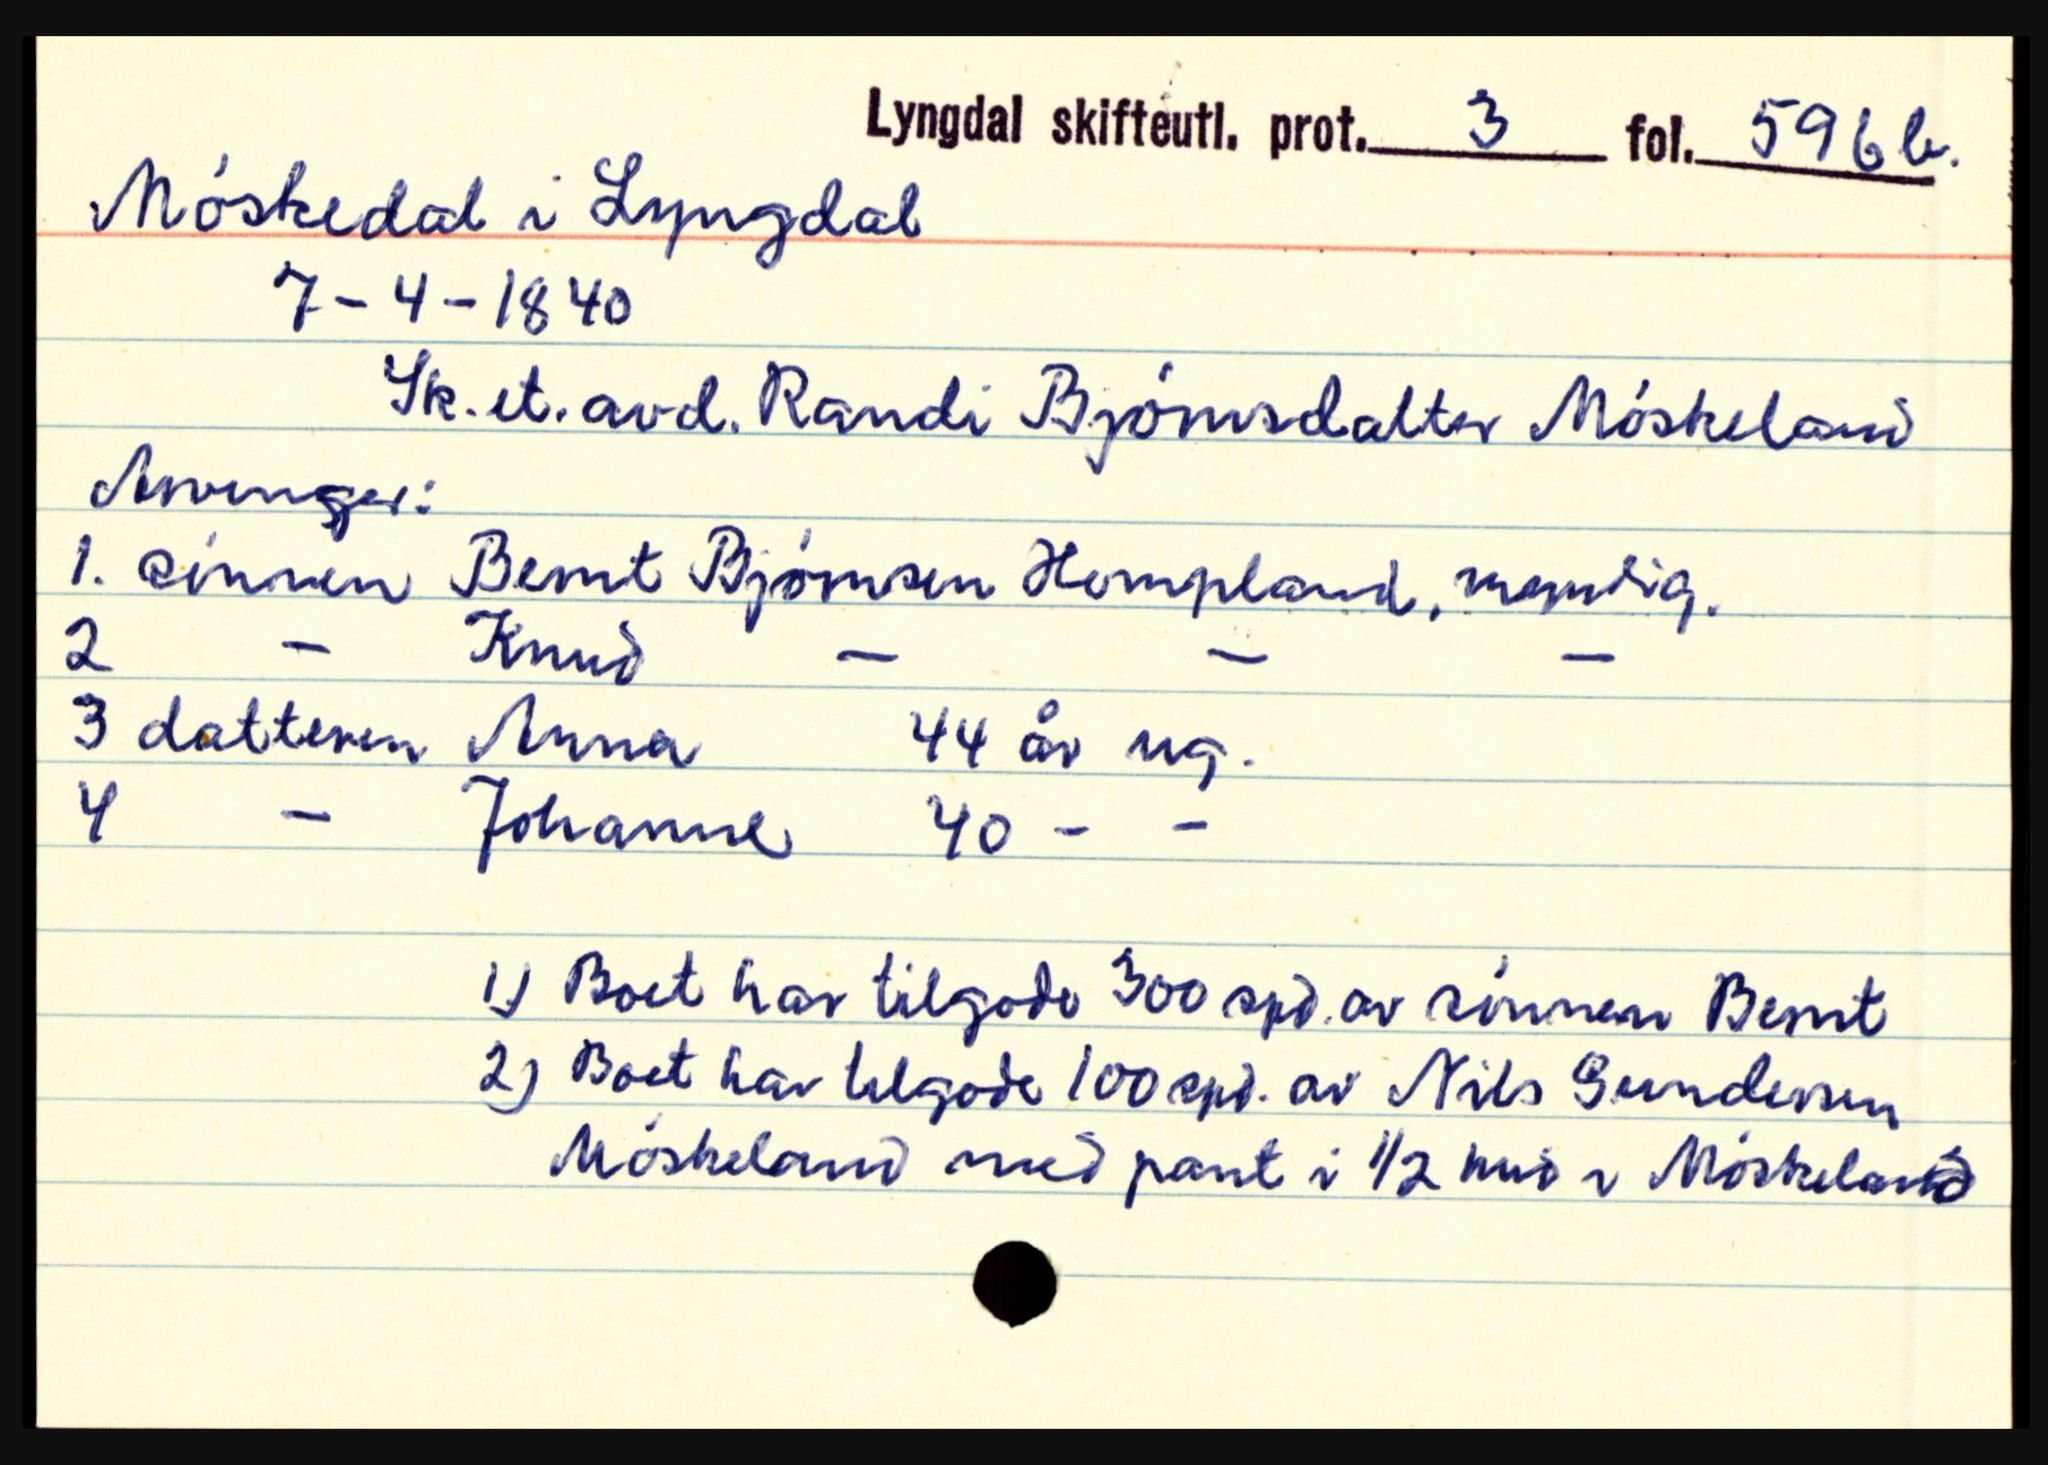 Lyngdal skifteutl. prot. 3 fol. 596 b.
Móskedal i Lyngdal
7-4-1840
Sk. et. avd. Randi Bjórnsdatter Móskeland
Arvinger:
1. sónnen Bernt Bjórnsen Hompland, myndig.
2 - Knud - - -
3 datteren Anna 44 år ug.
4 - Johanne 40 - -
1) Boet har tilgode 300 spd. av sónnen Bernt
2) Boet har tilgode 100 spd. av Nils Gundersen
Móskeland med pant i 1/2 hud i Móskeland